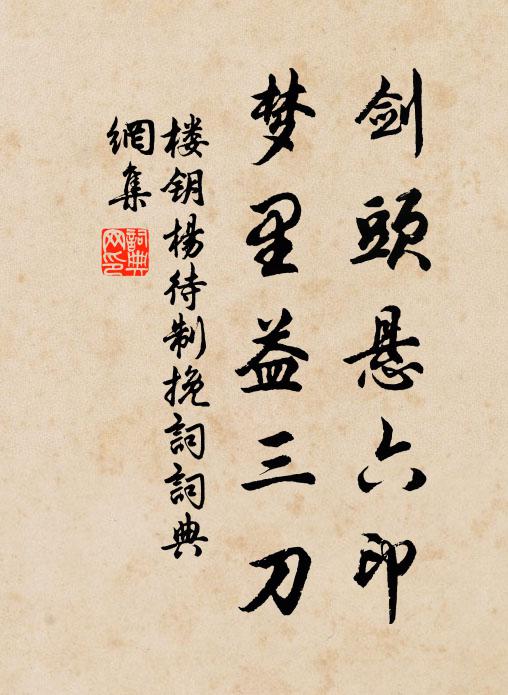 剑頭悬六印
梦里益三刀
楼钥杨待制挽詞詞典
網集
詞典
网印